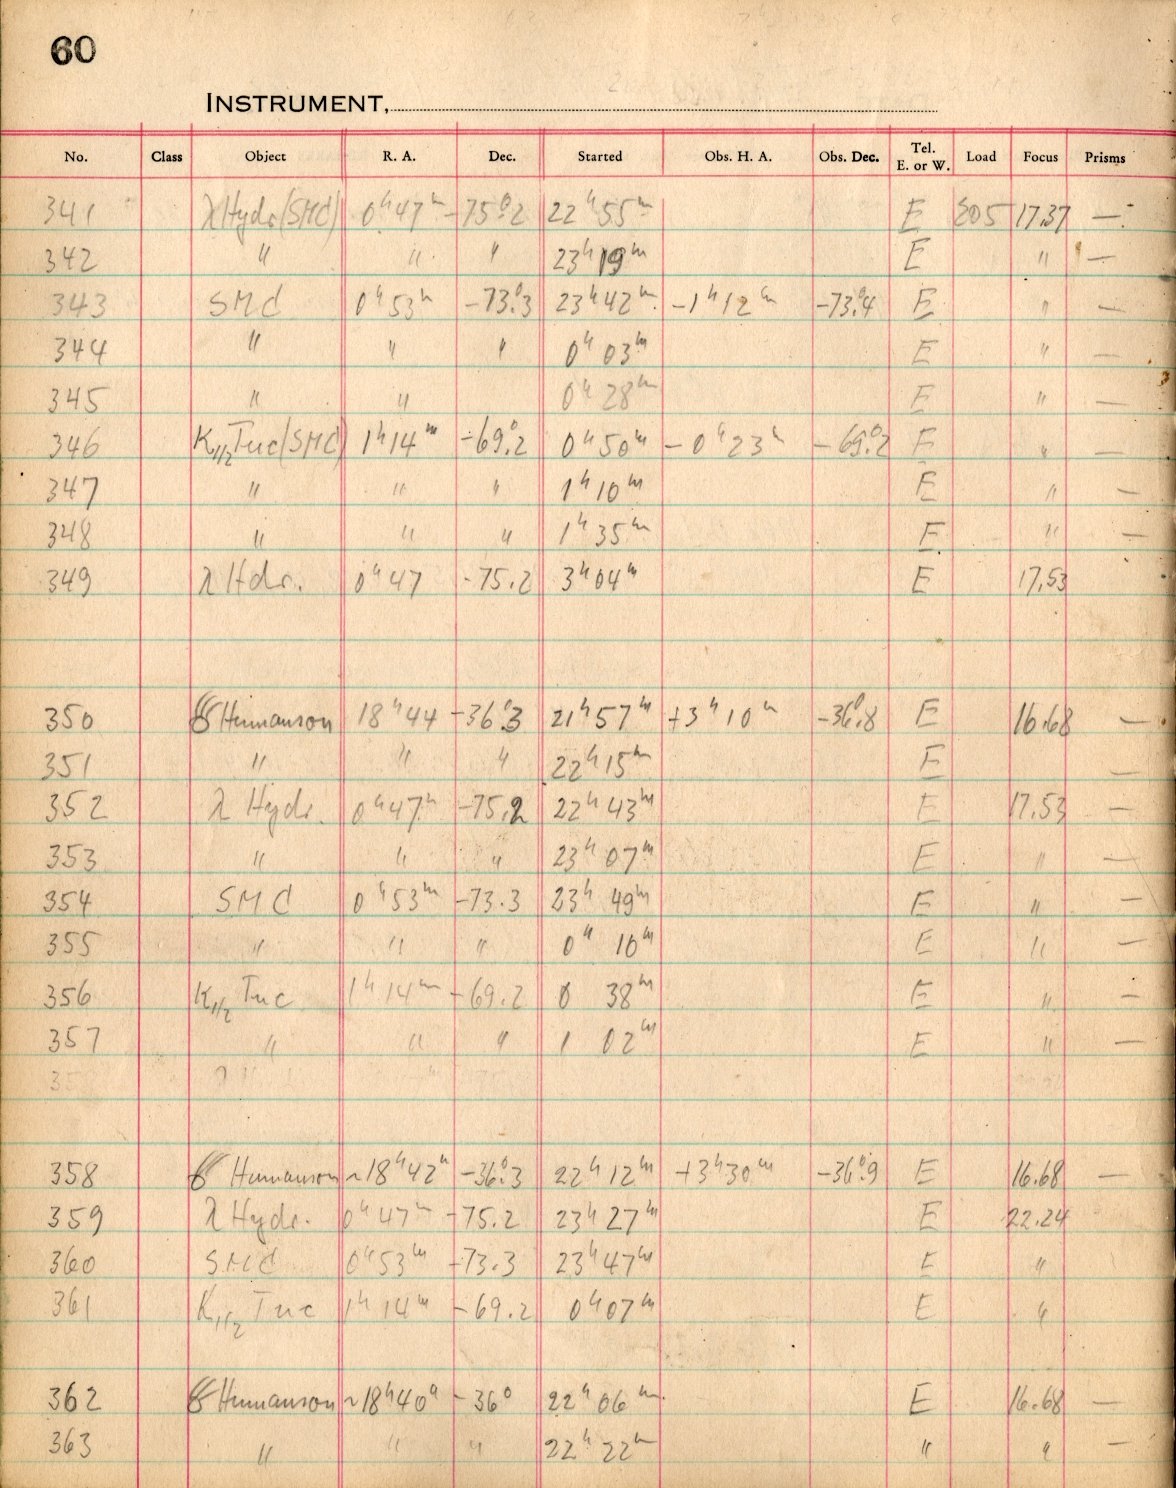 60
INSTRUMENT,
No. Class Object R. A. Dec. Started Obs. H. A. Obs. Dec. Tel. E. or W. Load Focus Prisms
341 λ Hydr (SMC) 0h 47m -75°.2 22h 55m E 305 17.37 —
342 " " " 23h 19m E " —
343 SMC 0h 53m -73°.3 23h 42m -1h 12m -73°.4 E " —
344 " " " 0h 03m E " —
345 " " 0h 28m E " —
346 K1/2 Tuc (SMC) 1h 14m -69°.2 0h 50m -0h 23m -69°.2 E " —
347 " " " 1h 10m E " —
348 " " " 1h 35m E " —
349 λ Hdr. 0h 47 -75.2 3h 04m E 17.53
350 Humanson 18h 44 -36°.3 21h 57m +3h 10m -36°.8 E 16.68 —
351 " " " 22h 15m E —
352 λ Hydr. 0h 47m -75.2 22h 43m E 17.53 —
353 " " " 23h 07m E " —
354 SMC 0h 53m -73.3 23h 49m E " —
355 " " " 0h 10m E " —
356 K1/2 Tuc 1h 14m -69.2 0 38m E " —
357 " " " 1 02m E " —
358 Humanson ~18h 42m -36°.3 22h 12m +3h 30m -36°.9 E 16.68 —
359 λ Hydr. 0h 47m -75.2 23h 27m E 22.24
360 SMC 0h 53m -73.3 23h 47m E "
361 K1/2 Tuc 1h 14m -69.2 0h 07m E "
362 Humanson ~18h 40m -36° 22h 06m E 16.68 —
363 " " " 22h 22m " " —